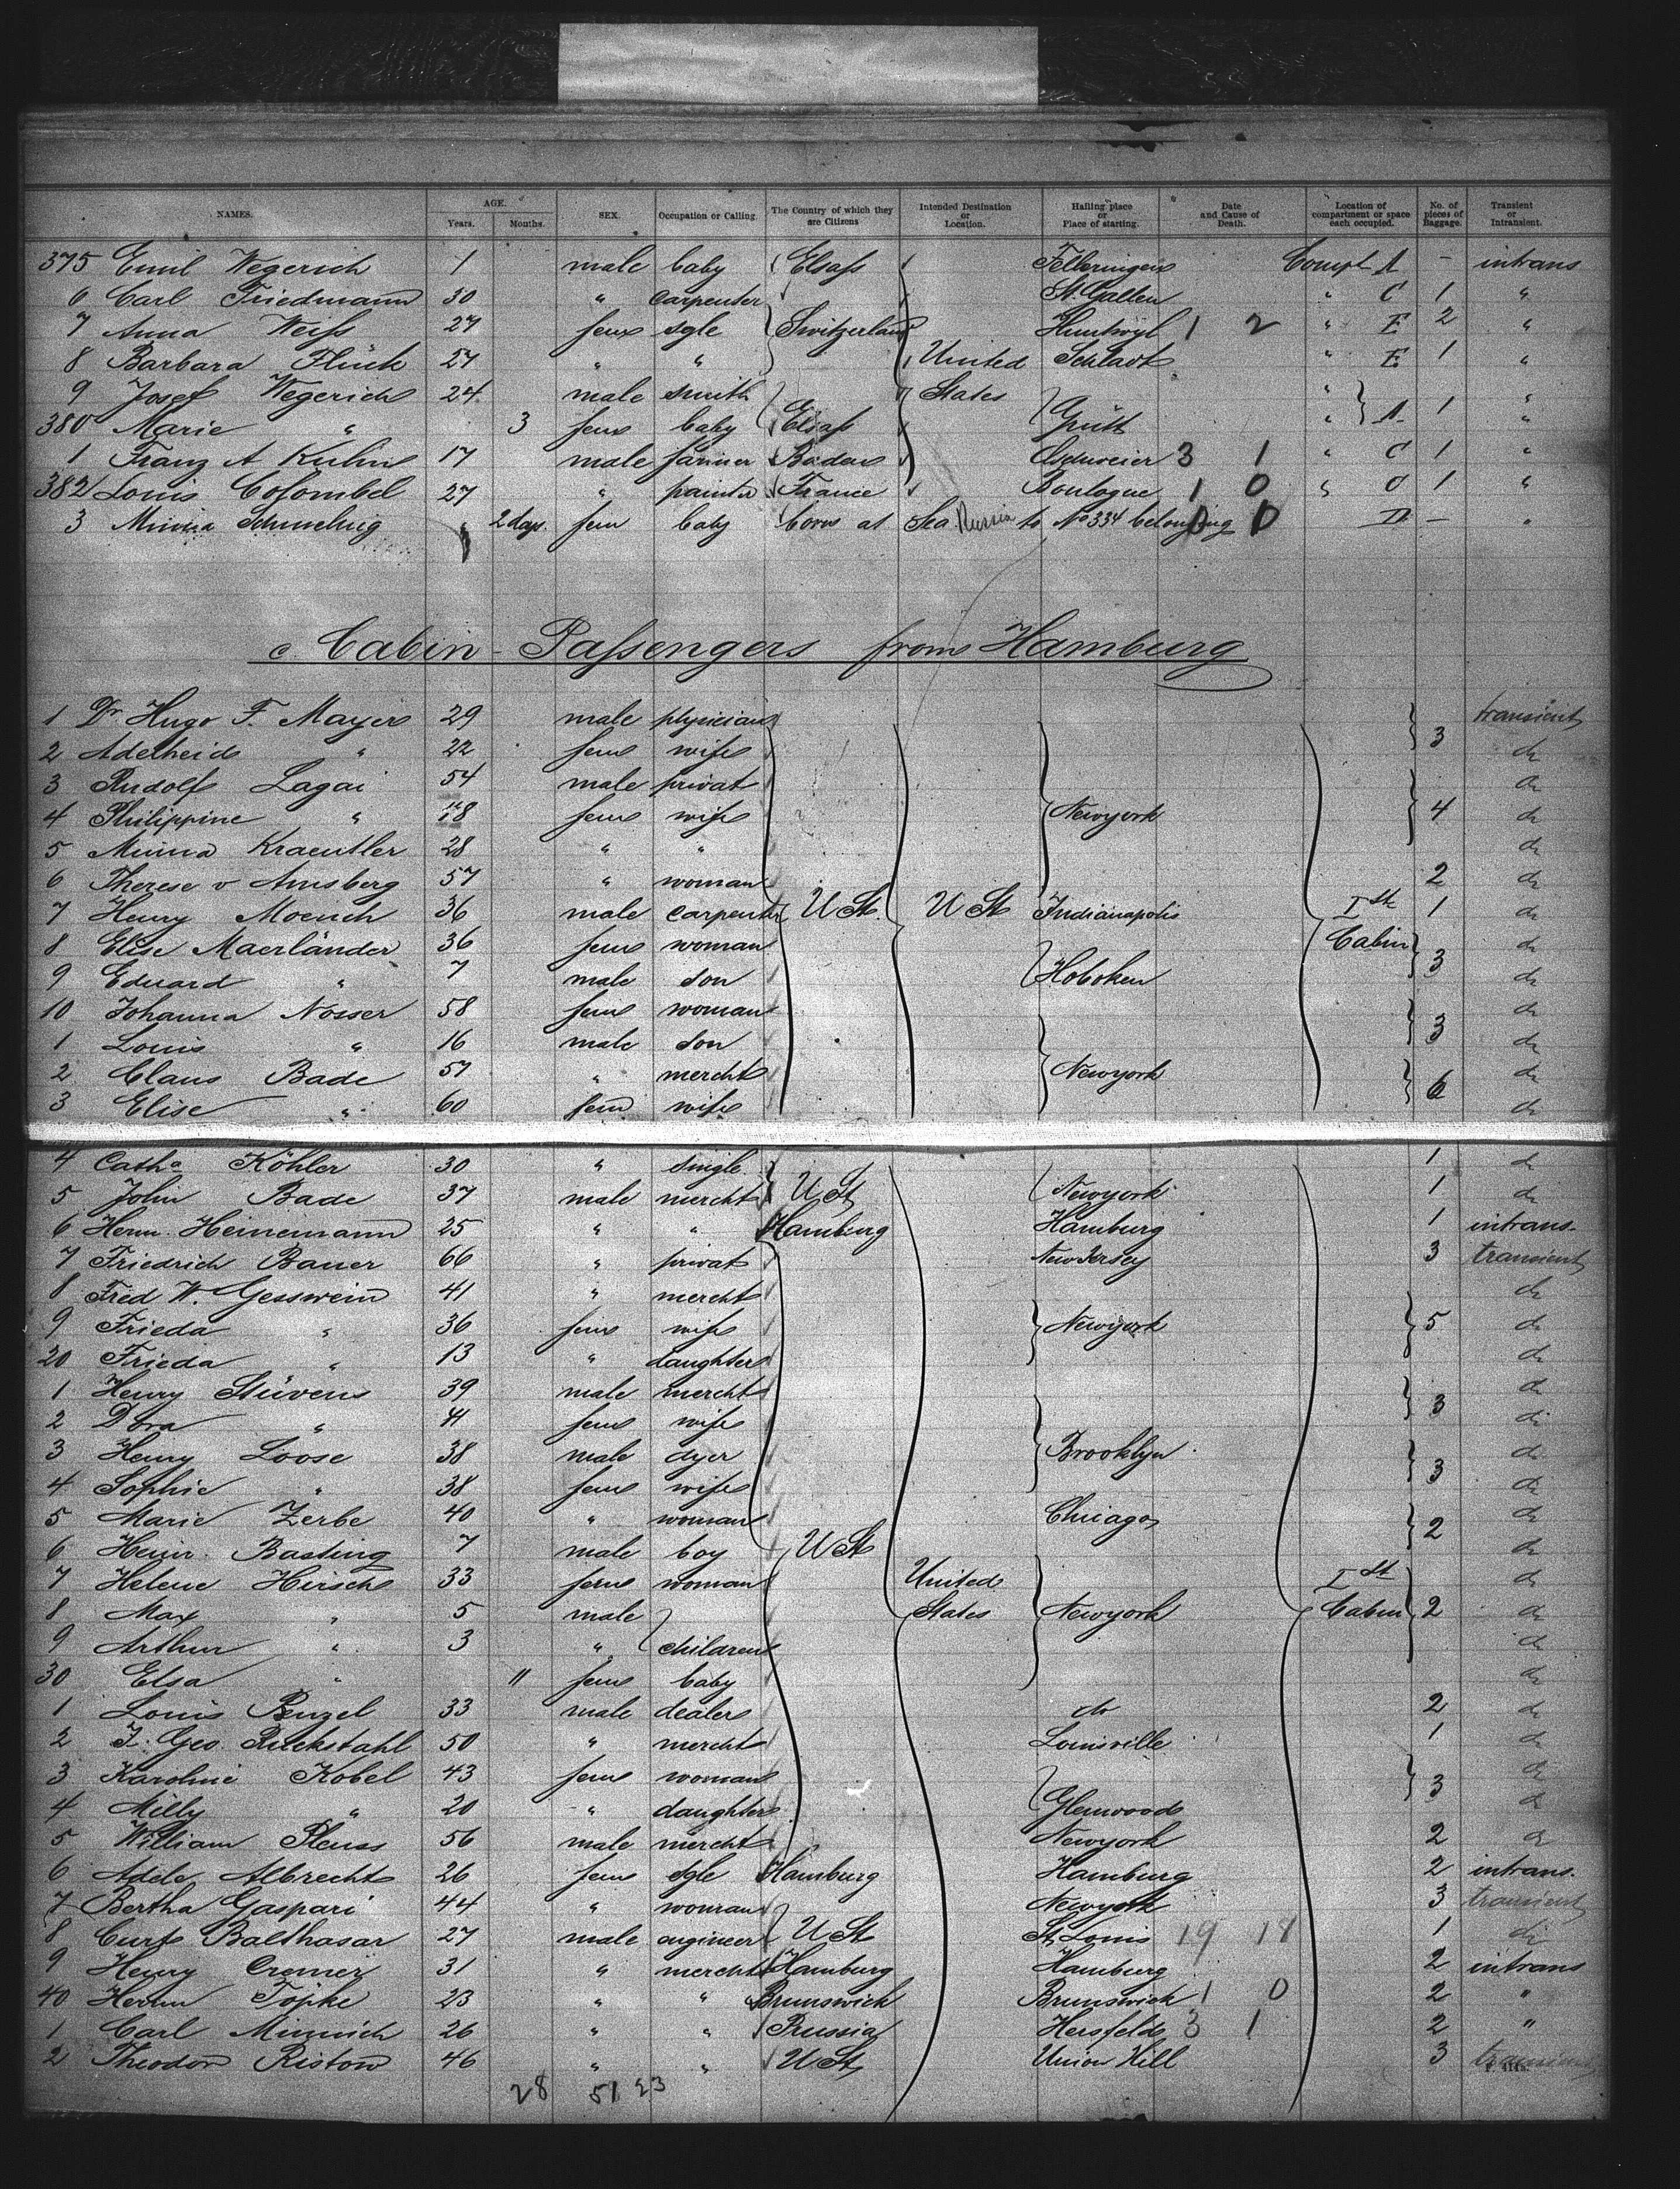 NAMES. AGE. Years. Months. SEX. Occupation or Calling. The Country of which they are Citizens Intended Destination or Location. Hailing place or Place of starting. Date and Cause of Death. Location of compartment or space each occupied. No. of pieces of Baggage. Transient or Intransient.
375 Emil Wegerich 1 male baby Elsaß Felleringen Compt A – intrans
6 Carl Friedmann 30 " carpenter St. Gallen " C 1 "
7 Anna Weiß 27 fem sgle Switzerland 1 2 " E 2 "
8 Barbara Flück 27 " " United " E 1 "
9 Josef Wegerich 24 male smith States " 1 "
380 Marie " 3 fem baby Elsaß Grütt " A "
1 Franz A Kuhn 17 male farmer Baden 3 1 " C 1 "
382 Louis Colombel 27 " painter France Boulogne 1 0 " O 1 "
3 Minna 2 days fem baby born at Sea Russia to No 334 belonging 0 D – "
Cabin-Paßengers from Hamburg
1 Dr Hugo F. Mayer 29 male physician transient
2 Adelheid " 22 fem wife 3 do
3 Rudolf Lagai 54 male privat do
4 Philippine " fem wife Newyork 4 do
5 Minna Kraentler 28 " " do
6 Therese v Amsberg 57 " woman 2 do
7 Henry Moench 36 male carpenter U St U St Indianapolis Ist 1 do
8 Elise Maerländer 36 fem woman Cabin do
9 Eduard " 7 male son Hoboken 3 do
10 Johanna Nosser 58 fem woman do
1 Louis " 16 male son 3 do
2 Claus Bade 57 " mercht Newyork do
3 Elise " 60 fem wife 6 do
4 Catha Köhler 30 " single 1 do
5 John Bade 37 male mercht U St Newyork 1 do
6 Herm. Heinemann 25 " " Hamburg Hamburg 1 intrans.
7 Friedrich Bauer 66 " privat New Jersey 3 transient
8 Fred W. Gesswein 41 " mercht do
9 Frieda " 36 fem wife Newyork 5 do
20 Frieda " 13 " daughter do
1 Henry Stüvens 39 male mercht do
2 Dora " 41 fem wife 3 do
3 Henry Loose 38 male dyer Brooklyn do
4 Sophie " 38 fem wife 3 do
5 Marie Zerbe 40 " woman Chicago do
6 Heinr. Basting 7 male boy U St 2 do
7 Helene Hirsch 33 fem woman United Ist do
8 Max " 5 male States Newyork Cabin 2 do
9 Arthur " 3 " children do
30 Elsa " 11 fem baby do
1 Louis Benzel 33 male dealer do 2 do
2 J. Geo. Ruckstahl 50 " mercht Louisville 1 do
3 Karoline Kobel 43 fem woman do
4 Milly " 20 " daughter Glenwood 3 do
5 William Steuss 56 male mercht Newyork 2 do
6 Adele Albrecht 26 fem sgle Hamburg Hamburg 2 intrans.
7 Bertha Gaspari 44 " woman Newyork 3 transient
8 Curt Balthasar 27 male engineer U St St Louis 19 18 1 do
9 Henry Cremer 31 " mercht Hamburg Hamburg 2 intrans
40 Herm Töpke 23 " " Brunswick Brunswick 1 0 2 "
1 Carl Minnich 26 " " Prussia Hersfeld 3 1 2 "
2 Theodor Ristow 46 " " U St Union Hill 3 transient
28 51 23